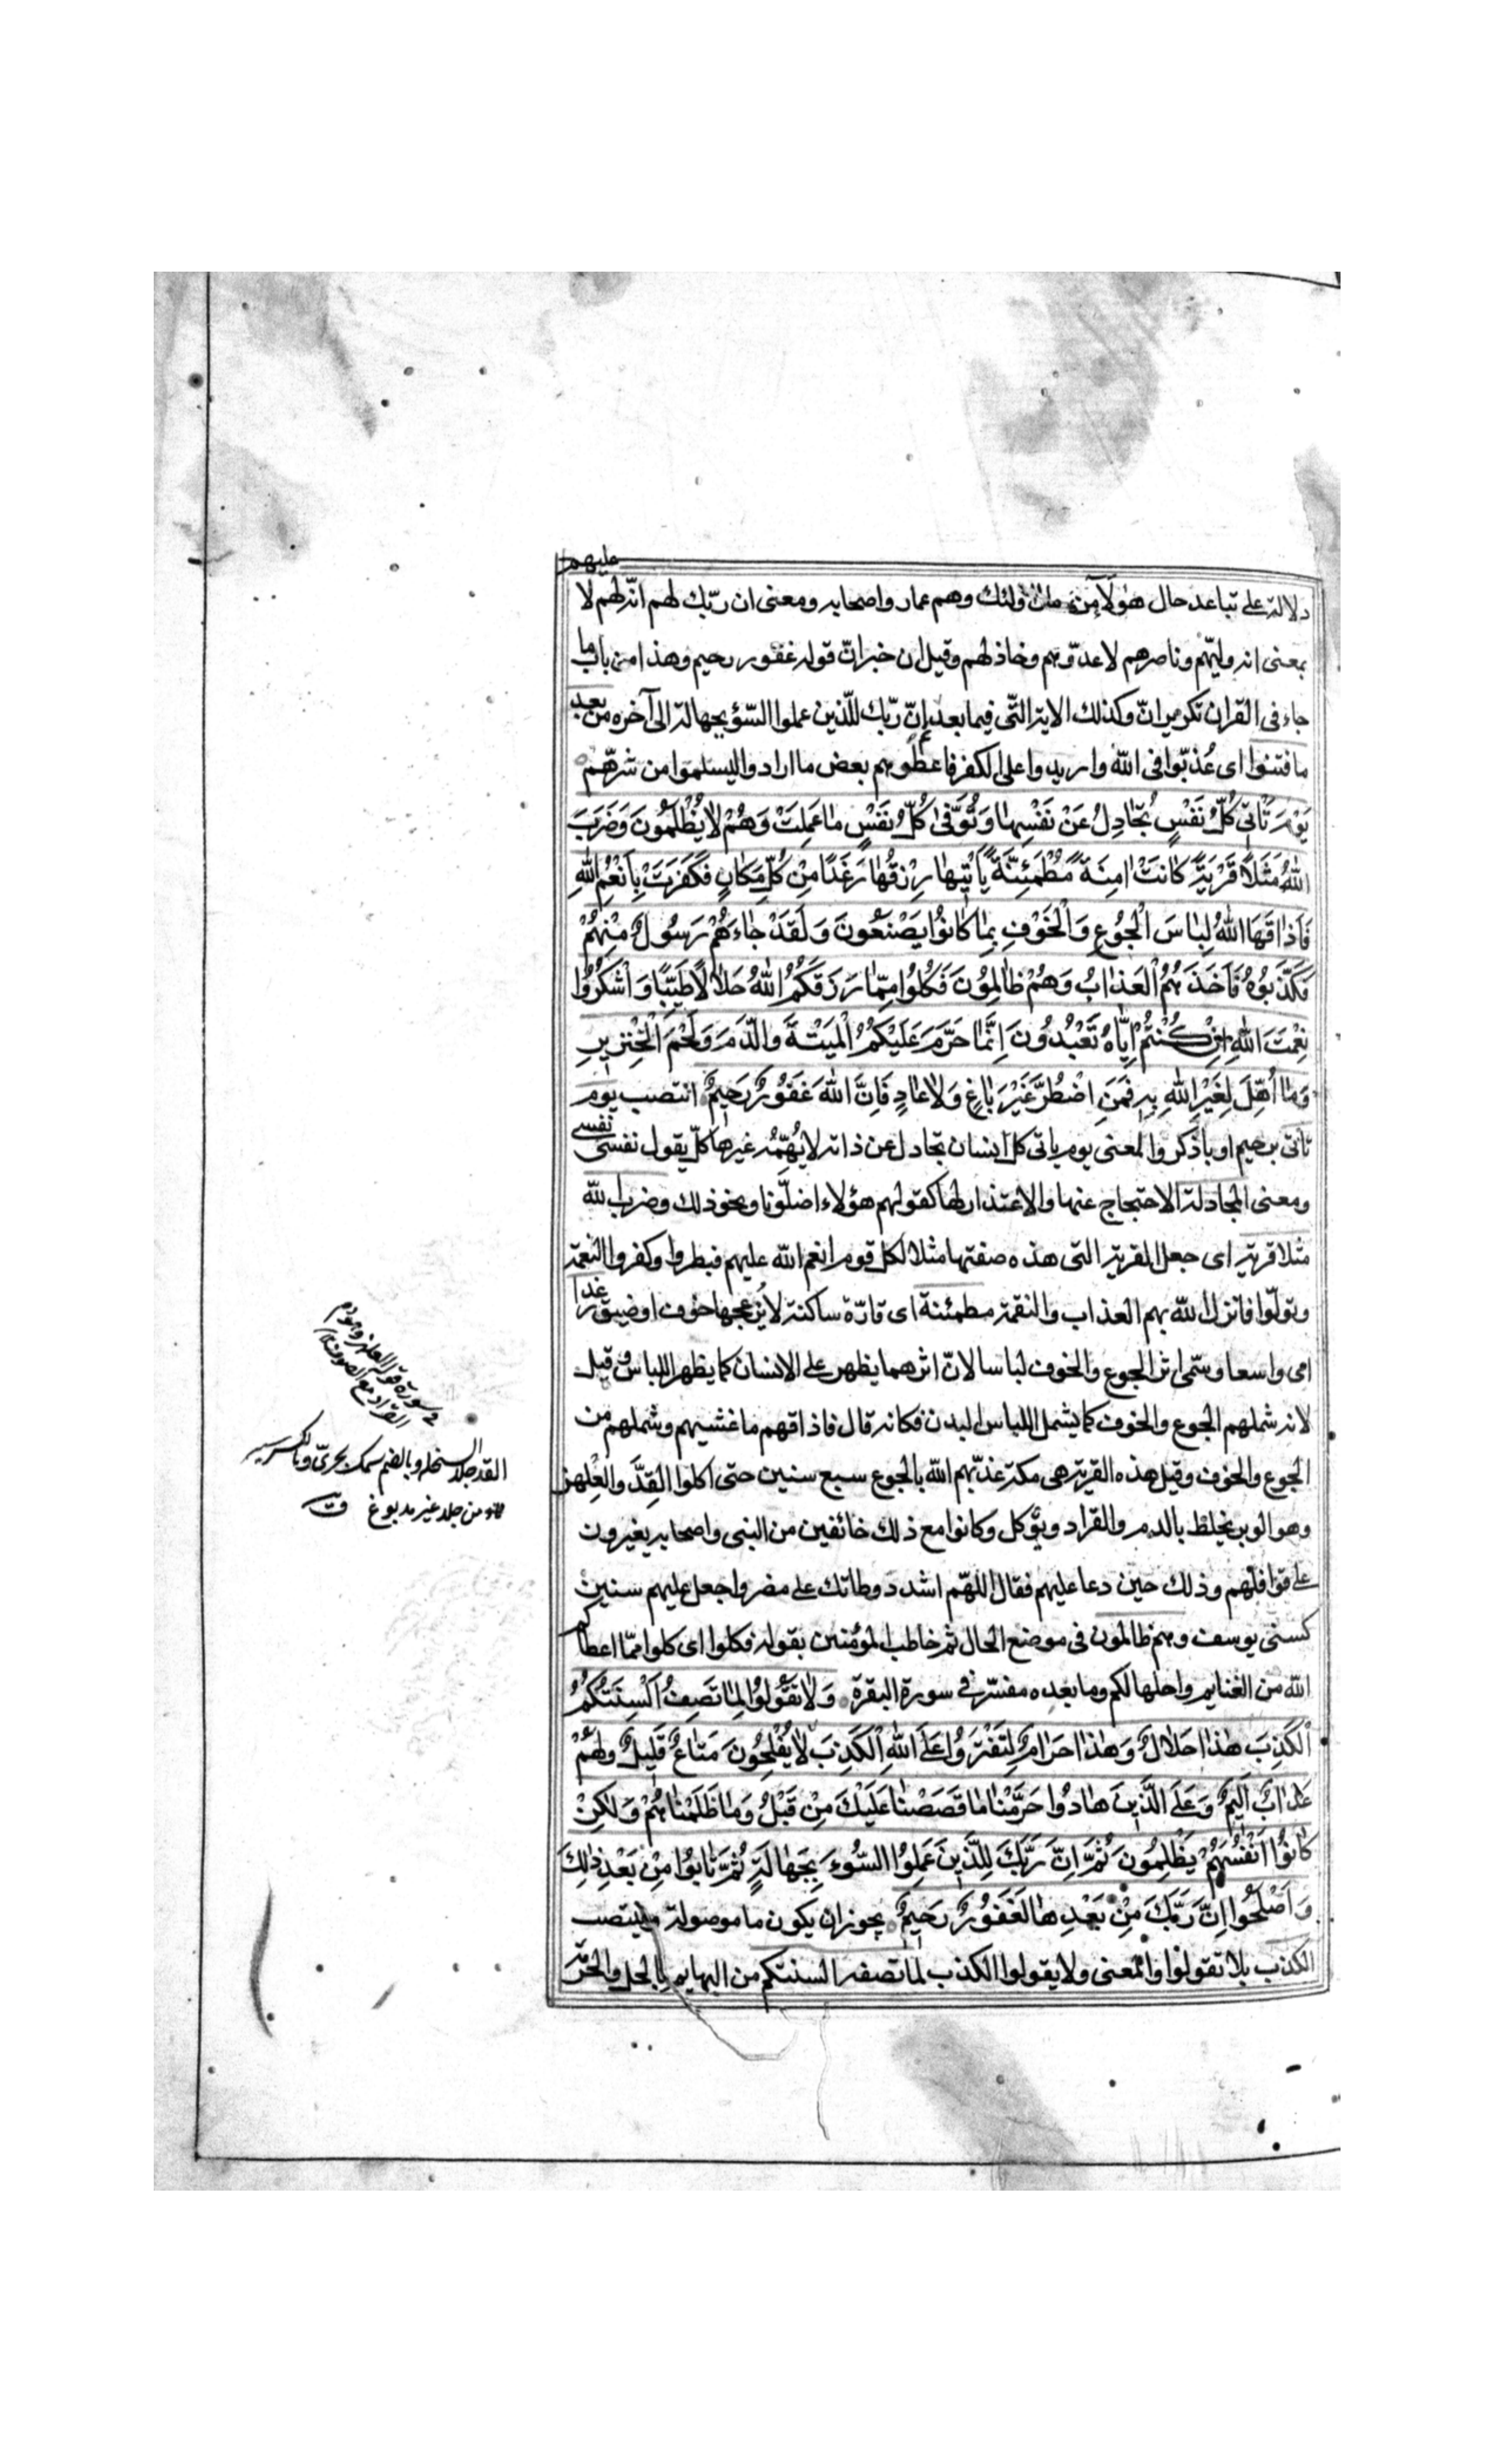 دلالة على تباعد حال هؤلاء من حال اولئك وهم عمار واصحابه ومعنى ان ربّك لهم انّه لهم لا عليهم
بمعنى انه وليّهم وناصرهم لا عدوّهم وخاذلهم وقيل ان خبر انّ قوله غفور رحيم وهذا من باب ما
جاء فى القران تكرير انّ وكذلك الاية التّى فيما بعد إنّ ربّك للّذين عملوا السّوء بجهالة الى آخره من بعد
ما فتنوا اى عُذّبوا فى اللّه واريدوا على الكفر فاعطوهم بعض ما ارادوا ليسلموا من شرّهم
يَوْمَ تَأْتِى كُلُّ نَفْسٍ تُجَادِلُ عَنْ نَفْسِهَا وَتُوَفّىٰ كُلُّ نَفْسٍ مَا عَمِلَتْ وَهُمْ لَا يُظْلَمُونَ وَضَرَبَ
اللّٰهُ مَثَلًا قَرْيَةً كَانَتْ اٰمِنَةً مُطْمَئِنَّةً يَأْتِيهَا رِزْقُهَا رَغَدًا مِنْ كُلِّ مَكَانٍ فَكَفَرَتْ بِأَنْعُمِ اللّٰهِ
فَأَذَاقَهَا اللّٰهُ لِبَاسَ الْجُوعِ وَالْخَوْفِ بِمَا كَانُوا يَصْنَعُونَ وَلَقَدْ جَاءَهُمْ رَسُولٌ مِنْهُمْ
فَكَذَّبُوهُ فَأَخَذَهُمُ الْعَذَابُ وَهُمْ ظَالِمُونَ فَكُلُوا مِمَّا رَزَقَكُمُ اللّٰهُ حَلَالًا طَيِّبًا وَاشْكُرُوا
نِعْمَتَ اللّٰهِ اِنْ كُنْتُمْ اِيَّاهُ تَعْبُدُونَ اِنَّمَا حَرَّمَ عَلَيْكُمُ الْمَيْتَةَ وَالدَّمَ وَلَحْمَ الْخِنْزِيرِ
وَمَا أُهِلَّ لِغَيْرِ اللّٰهِ بِهِ فَمَنِ اضْطُرَّ غَيْرَ بَاغٍ وَلَا عَادٍ فَاِنَّ اللّٰهَ غَفُورٌ رَحِيمٌ انتصب يوم
تأتى برحيم او باذكر والمعنى يوم ياتى كل انسان يجادل عن ذاته لا يُهمّه غيرها كلّ يقول نفسى نفسى
ومعنى المجادلة الاحتجاج عنها والاعتذار لها كقولهم هؤلاء اضلّونا ونحو ذلك وضرب اللّه
مثلا قرية اى جعل القرية التى هذه صفتها مثلا لكل قوم انعم اللّه عليهم فبطروا وكفروا النعمة
وتولّوا فانزل اللّه بهم العذاب والنقمة مطمئنة اى قارّة ساكنة لا يُزعجها خوف او ضيق رغدا
اى واسعا وسمّى اثر الجوع والخوف لباسا لانّ اثرهما يظهر على الانسان كما يظهر اللباس وقيل
لانه شملهم الجوع والخوف كما يشمل اللباس البدن فكانه قال فاذاقهم ما غشيهم وشملهم من
الجوع والخوف وقيل هذه القرية هى مكة عذّبهم اللّه بالجوع سبع سنين حتى اكلوا القِدّ والعِلْهز
وهو الوبر يخلط بالدم والقراد ويؤكل وكانوا مع ذلك خائفين من النبى واصحابه يغيرون
على قوافلهم وذلك حين دعا عليهم فقال اللهّم اشدد وطأتك على مضر واجعل عليهم سنين
كسنى يوسف وهم ظالمون فى موضع الحال ثم خاطب المؤمنين بقوله فكلوا اى كلوا ممّا اعطاكم
اللّه من الغنايم واحلها لكم وما بعده مفسّر فى سورة البقرة وَلَا تَقُولُوا لِمَا تَصِفُ اَلْسِنَتُكُمُ
الْكَذِبَ هٰذَا حَلَالٌ وَهٰذَا حَرَامٌ لِتَفْتَرُوا عَلَى اللّٰهِ الْكَذِبَ لَا يُفْلِحُونَ مَتَاعٌ قَلِيلٌ وَلَهُمْ
عَذَابٌ اَلِيمٌ وَعَلَى الَّذِينَ هَادُوا حَرَّمْنَا مَا قَصَصْنَا عَلَيْكَ مِنْ قَبْلُ وَمَا ظَلَمْنَاهُمْ وَلٰكِنْ
كَانُوا اَنْفُسَهُمْ يَظْلِمُونَ ثُمَّ اِنَّ رَبَّكَ لِلَّذِينَ عَمِلُوا السُّوءَ بِجَهَالَةٍ ثُمَّ تَابُوا مِنْ بَعْدِ ذٰلِكَ
وَاَصْلَحُوا اِنَّ رَبَّكَ مِنْ بَعْدِهَا لَغَفُورٌ رَحِيمٌ يجوز ان يكون ما موصولة وينتصب
الكذب بلا تقولوا والمعنى ولا يقولوا الكذب لما تصفه السنتكم من البهايم بالحل والحرمة
القد جلد السخلة وبالضم سمك بحرىّ وبالكسر سير
من جلد غير مدبوغ ق